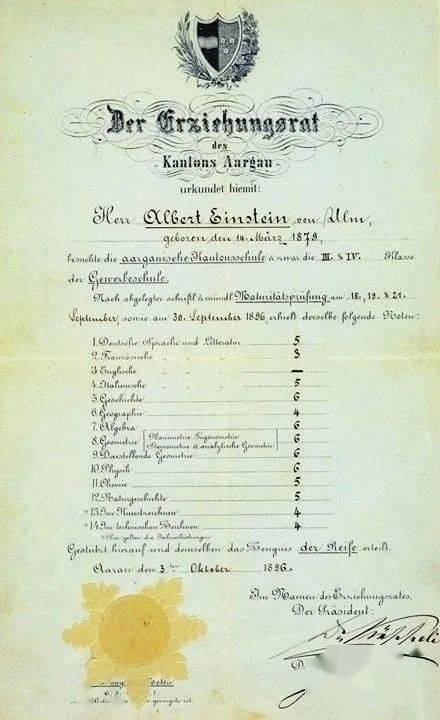 Der Erziehungsrat
des
Kantons Aargau
urkundet hiemit:
Herr Albert Einstein von Ulm,
geboren den 14. März 1879,
besuchte die aargauische Kantonsschule & zwar die III. & IV. Klasse
der Gewerbeschule.
Nach abgelegter schriftl. & mündl. Maturitätsprüfung am 18., 19. & 21.
September, sowie am 30. September 1896, erhielt derselbe folgende Noten:
1. Deutsche Sprache und Litteratur 5
2. Französische " " " 3
3. Englische " " " —
4. Italienische " " " 5
5. Geschichte 6
6. Geographie 4
7. Algebra 6
8. Geometrie (Planimetrie, Trigonometrie, Stereometrie & analytische Geometrie) 6
9. Darstellende Geometrie 6
10. Physik 6
11. Chemie 5
12. Naturgeschichte 5
*13. Im Kunstzeichnen 4
*14. Im technischen Zeichnen 4
* Hier gelten die Jahresleistungen.
Gestützt hierauf wird demselben das Zeugnis der Reife erteilt.
Aarau den 3ten Oktober 1896.
Im Namen des Erziehungsrates,
Der Präsident:
Dr. Käppeli
D